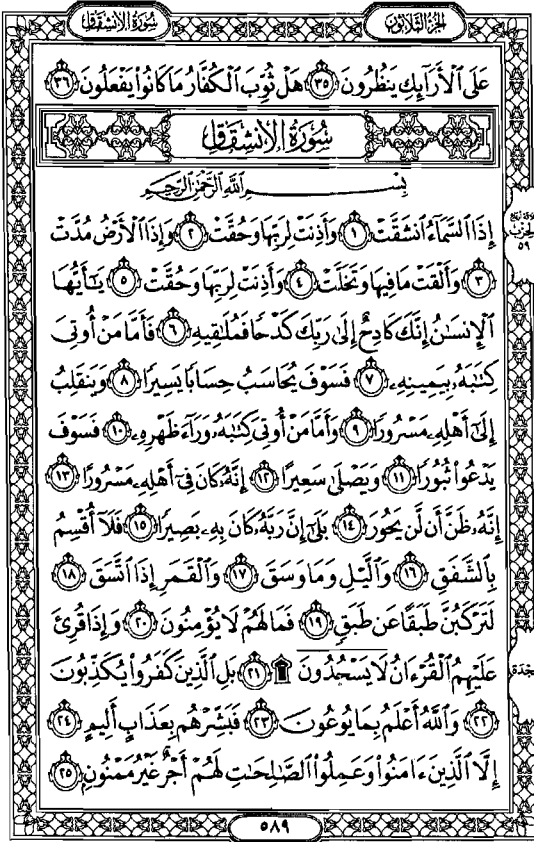 سُورَةُ الانشِقَاقِ
الجُزءُ الثَّلَاثُونَ
عَلَى ٱلْأَرَآئِكِ يَنظُرُونَ ٣٥ هَلْ ثُوِّبَ ٱلْكُفَّارُ مَا كَانُوا۟ يَفْعَلُونَ ٣٦
سُورَةُ الانشِقَاقِ
بِسْمِ ٱللَّهِ ٱلرَّحْمَٰنِ ٱلرَّحِيمِ
إِذَا ٱلسَّمَآءُ ٱنشَقَّتْ ١ وَأَذِنَتْ لِرَبِّهَا وَحُقَّتْ ٢ وَإِذَا ٱلْأَرْضُ مُدَّتْ
٣ وَأَلْقَتْ مَا فِيهَا وَتَخَلَّتْ ٤ وَأَذِنَتْ لِرَبِّهَا وَحُقَّتْ ٥ يَٰٓأَيُّهَا
ٱلْإِنسَٰنُ إِنَّكَ كَادِحٌ إِلَىٰ رَبِّكَ كَدْحًا فَمُلَٰقِيهِ ٦ فَأَمَّا مَنْ أُوتِىَ
كِتَٰبَهُۥ بِيَمِينِهِۦ ٧ فَسَوْفَ يُحَاسَبُ حِسَابًا يَسِيرًا ٨ وَيَنقَلِبُ
إِلَىٰٓ أَهْلِهِۦ مَسْرُورًا ٩ وَأَمَّا مَنْ أُوتِىَ كِتَٰبَهُۥ وَرَآءَ ظَهْرِهِۦ ١٠ فَسَوْفَ
يَدْعُوا۟ ثُبُورًا ١١ وَيَصْلَىٰ سَعِيرًا ١٢ إِنَّهُۥ كَانَ فِىٓ أَهْلِهِۦ مَسْرُورًا ١٣
إِنَّهُۥ ظَنَّ أَن لَّن يَحُورَ ١٤ بَلَىٰٓ إِنَّ رَبَّهُۥ كَانَ بِهِۦ بَصِيرًا ١٥ فَلَآ أُقْسِمُ
بِٱلشَّفَقِ ١٦ وَٱلَّيْلِ وَمَا وَسَقَ ١٧ وَٱلْقَمَرِ إِذَا ٱتَّسَقَ ١٨
لَتَرْكَبُنَّ طَبَقًا عَن طَبَقٍ ١٩ فَمَا لَهُمْ لَا يُؤْمِنُونَ ٢٠ وَإِذَا قُرِئَ
عَلَيْهِمُ ٱلْقُرْءَانُ لَا يَسْجُدُونَ ۩ ٢١ بَلِ ٱلَّذِينَ كَفَرُوا۟ يُكَذِّبُونَ
٢٢ وَٱللَّهُ أَعْلَمُ بِمَا يُوعُونَ ٢٣ فَبَشِّرْهُم بِعَذَابٍ أَلِيمٍ ٢٤
إِلَّا ٱلَّذِينَ ءَامَنُوا۟ وَعَمِلُوا۟ ٱلصَّٰلِحَٰتِ لَهُمْ أَجْرٌ غَيْرُ مَمْنُونٍۭ ٢٥
٥٨٩
٥٩